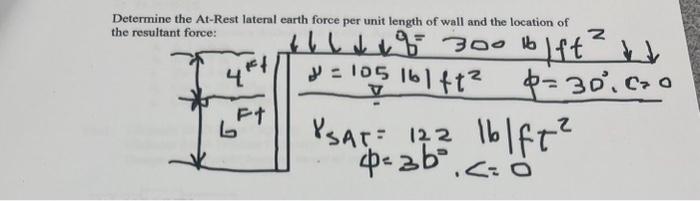 Determine the At-Rest lateral earth force per unit length of wall and the location of
the resultant force:
q= 300 lb/ft²
4 Ft
γ = 105 lb/ft² ϕ=30°, C=0
6 Ft
γSAT= 122 lb/ft²
ϕ=36°, C=0